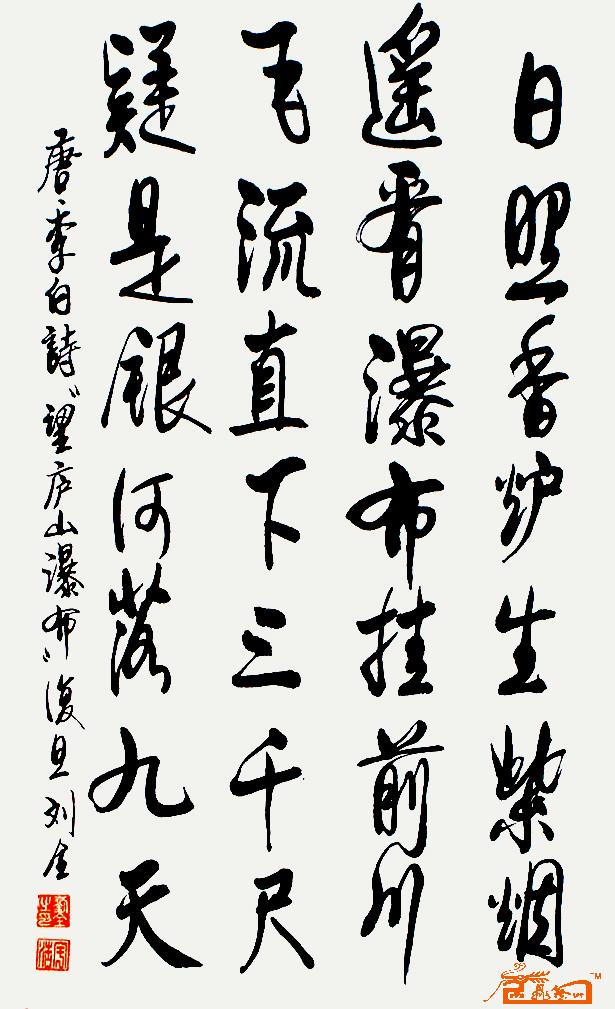 日照香炉生紫烟
遥看瀑布挂前川
飞流直下三千尺
疑是銀河落九天
唐·李白詩“望庐山瀑布”復旦刘金